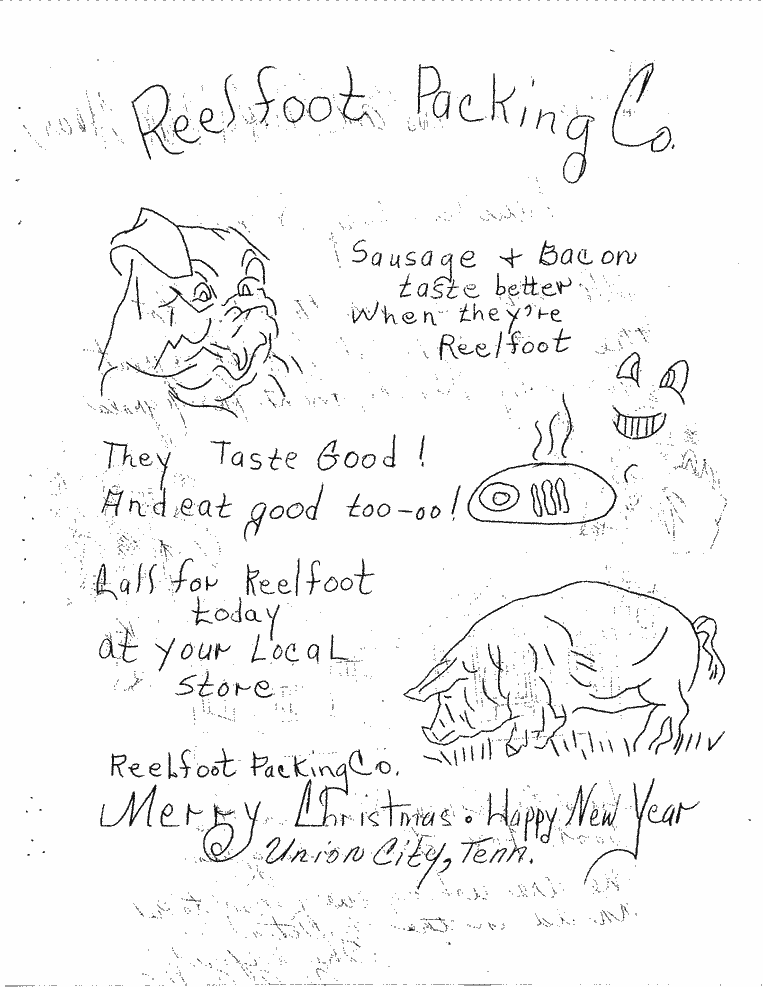 Reelfoot Packing Co.
Sausage + Bacon
taste better
When they're
Reelfoot
They Taste Good!
And eat good too-oo!
Call for Reelfoot
today
at your Local
Store
Reelfoot Packing Co.
Merry Christmas. Happy New Year
Union City, Tenn.